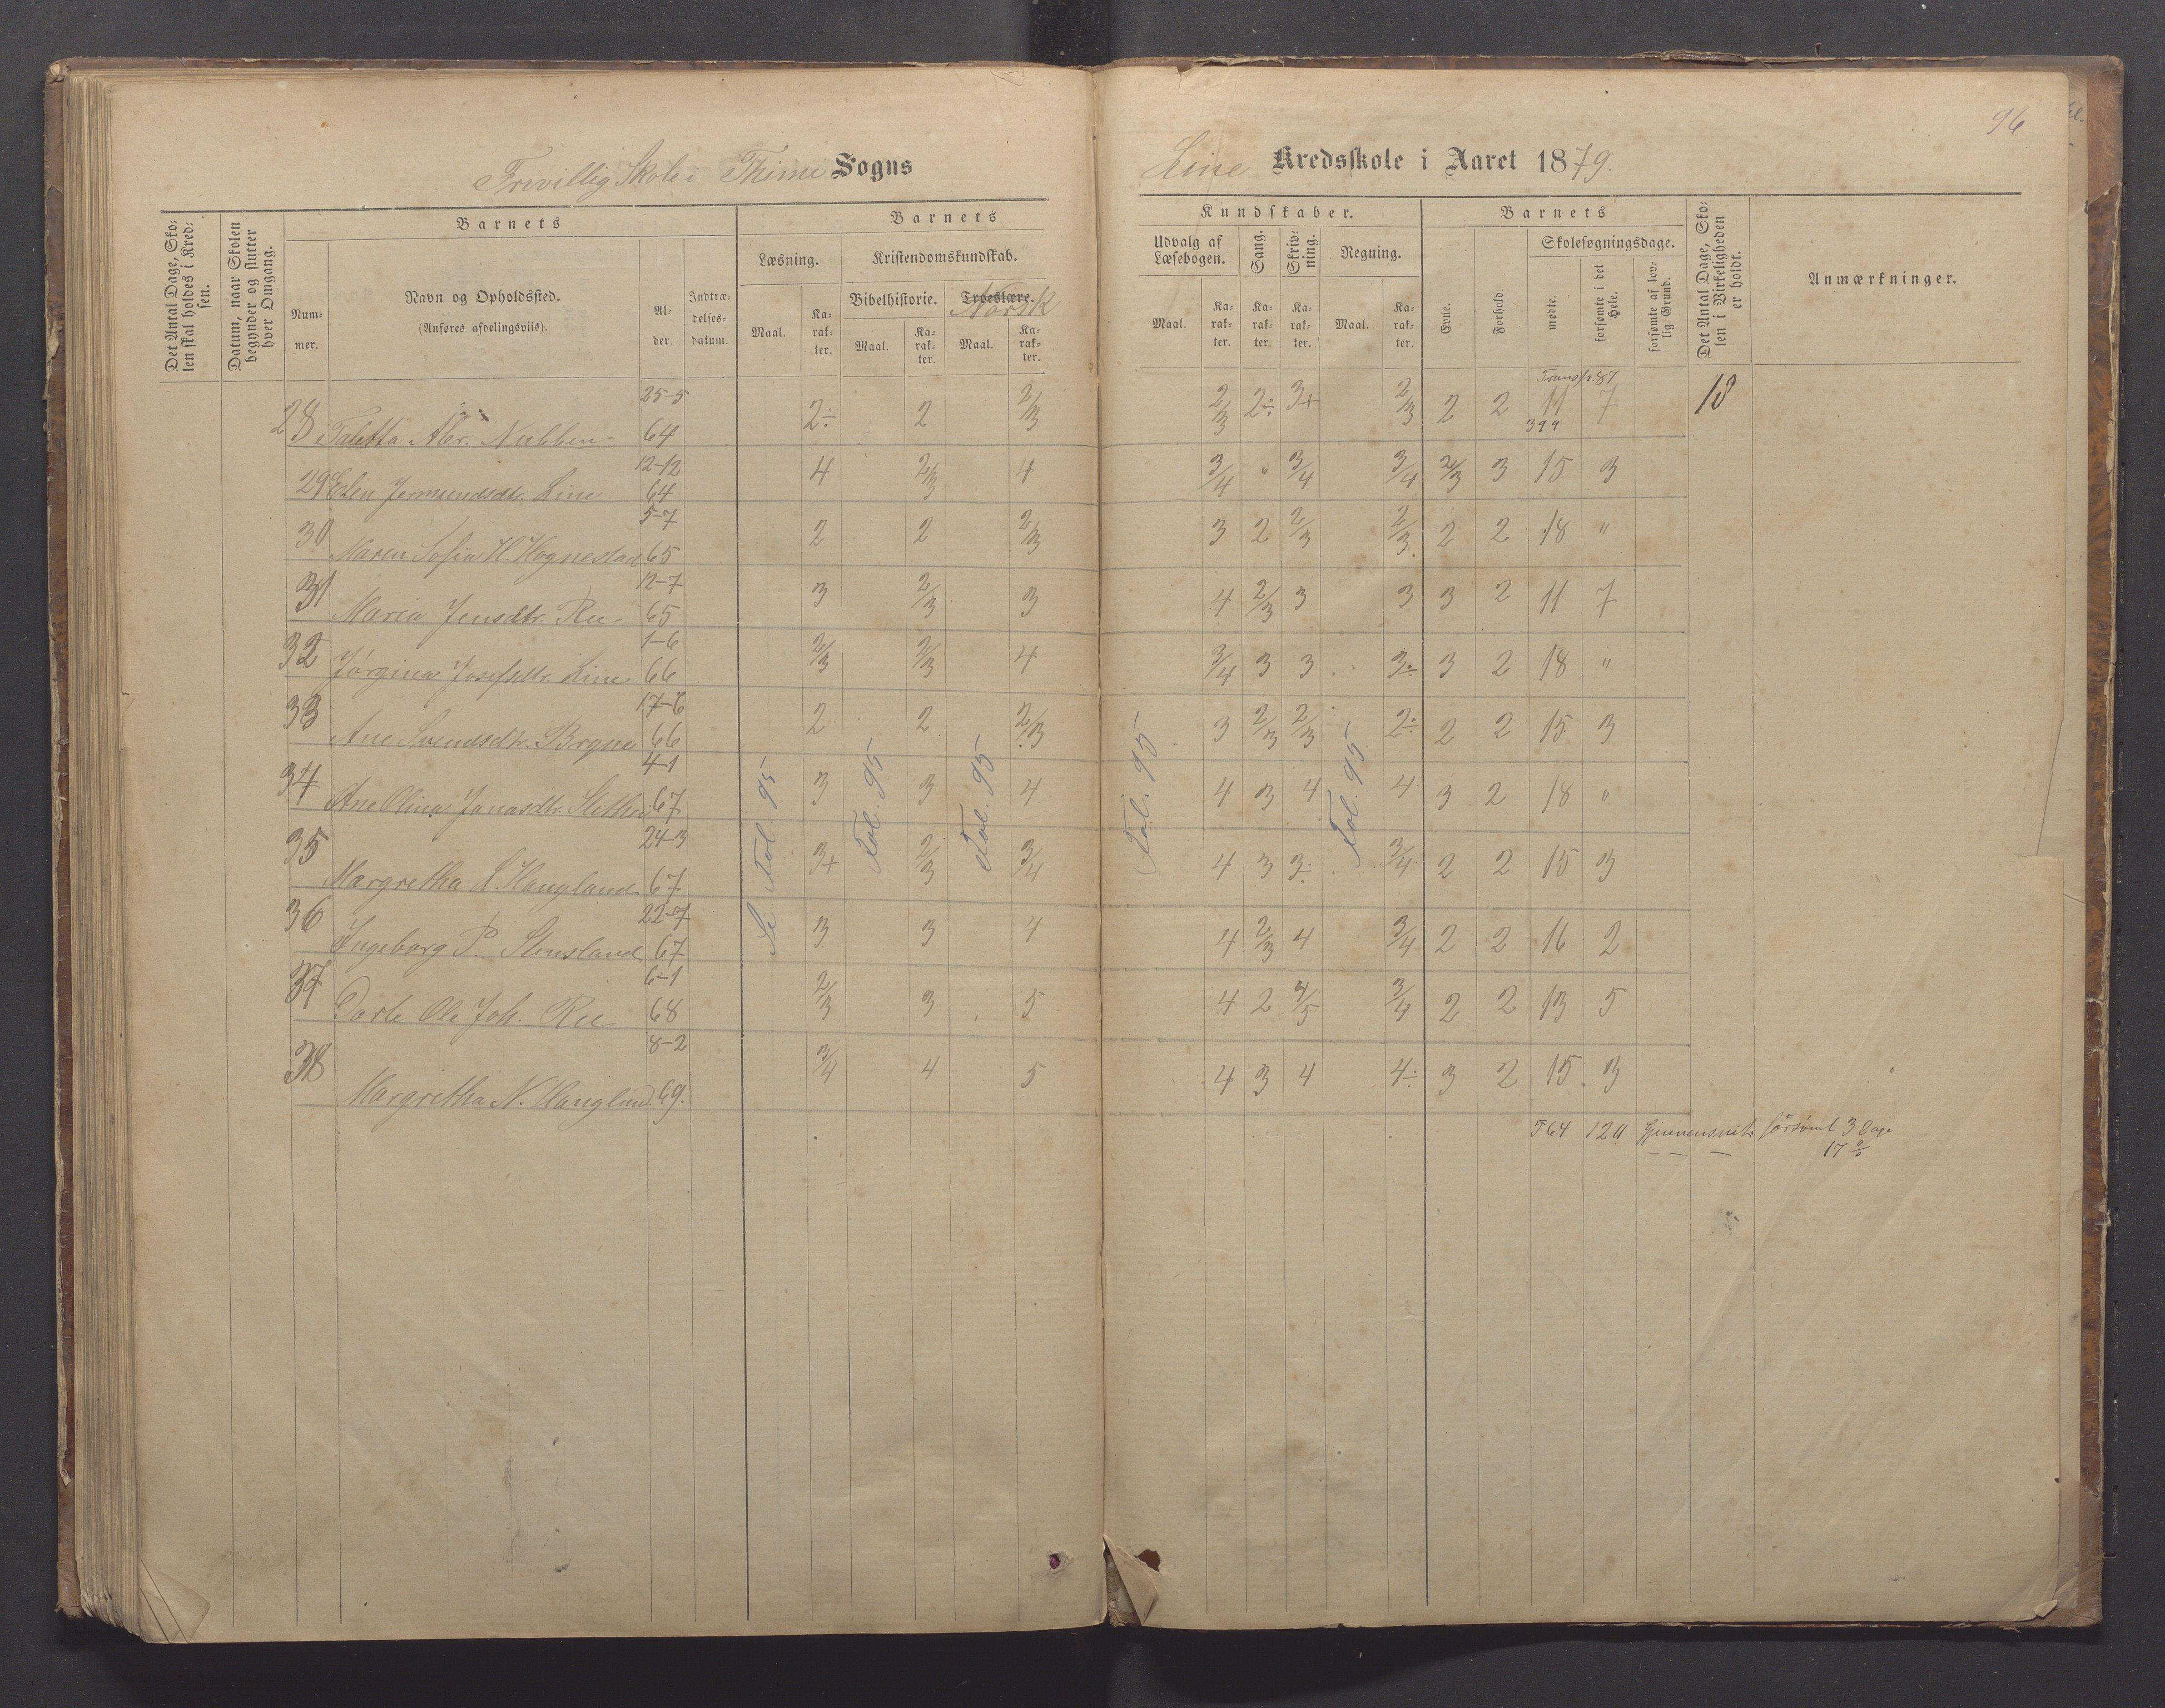 96
Frivillig Skole i Thime Sogns
Line Kredsskole i Aaret 1879.
Det Antal Dage, Skolen skal holdes i Kredsen.
Datum, naar Skolen begynder og slutter hver Omgang.
Barnets
Nummer.
Navn og Opholdssted.
(Anføres afdelingsviis).
Alder.
Indtrædelsesdatum.
Barnets
Kundskaber.
Læsning.
Kristendomskundskab.
Bibelhistorie.
Troeslære.
Norsk
Maal. Karakter. Maal. Karakter. Maal. Karakter.
Udvalg af Læsebogen.
Sang.
Skrivning.
Regning.
Maal. Karakter. Karakter. Karakter. Maal. Karakter.
Barnets
Evne.
Forhold.
Skolesøgningsdage.
mødte.
forsømte i det Hele.
forsømte af lovlig Grund.
Det Antal Dage, Skolen i Virkeligheden er holdt.
Anmærkninger.
Transp. 87
399
28 Taletta Abr. Nubben 25-5 64 2÷ 2 2/3 2/3 2÷ 3+ 2/3 2 2 11 7 18
29 Elen Jermundsdtr. Line 12-12 64 4 2/3 4 3/4 " 3/4 3/4 2/3 3 15 3
30 Maren Sofia H. Hognestad 5-7 65 2 2 2/3 3 2 2/3 2/3 2 2 18 "
31 Maria Jensdtr. Ree 12-7 65 3 2/3 3 4 2/3 3 3 3 2 11 7
32 Jørgina Josefsdtr. Line 1-6 66 2/3 2/3 4 3/4 3 3 3÷ 3 2 18 "
33 Ane Svendsdtr. Bryne 17-6 66 2 2 2/3 3 2/3 2/3 2÷ 2 2 15 3
34 Ane Olina Jonasdtr. Slethei 4-1 67 3 3 4 4 3 4 4 3 2 18 "
35 Margretha L. Haugland 24-3 67 3+ 2/3 3/4 4 3 3÷ 3/4 2 2 15 3
36 Ingeborg P. Stensland 22-7 67 3 3 4 4 2/3 4 3/4 2 2 16 2
37 Dorte Ole Joh. Ree 6-1 68 2/3 3 5 4 2 4/5 3/4 2 2 13 5
38 Margretha N. Haugland. 8-2 69. 3/4 4 5 4 3 4 4÷ 3 2 15 3
Se Fol. 95
Fol. 95
Fol. 95
Fol. 95
Fol. 95
564 120 Gjennemsnit forsømt 3 Dage
17 %